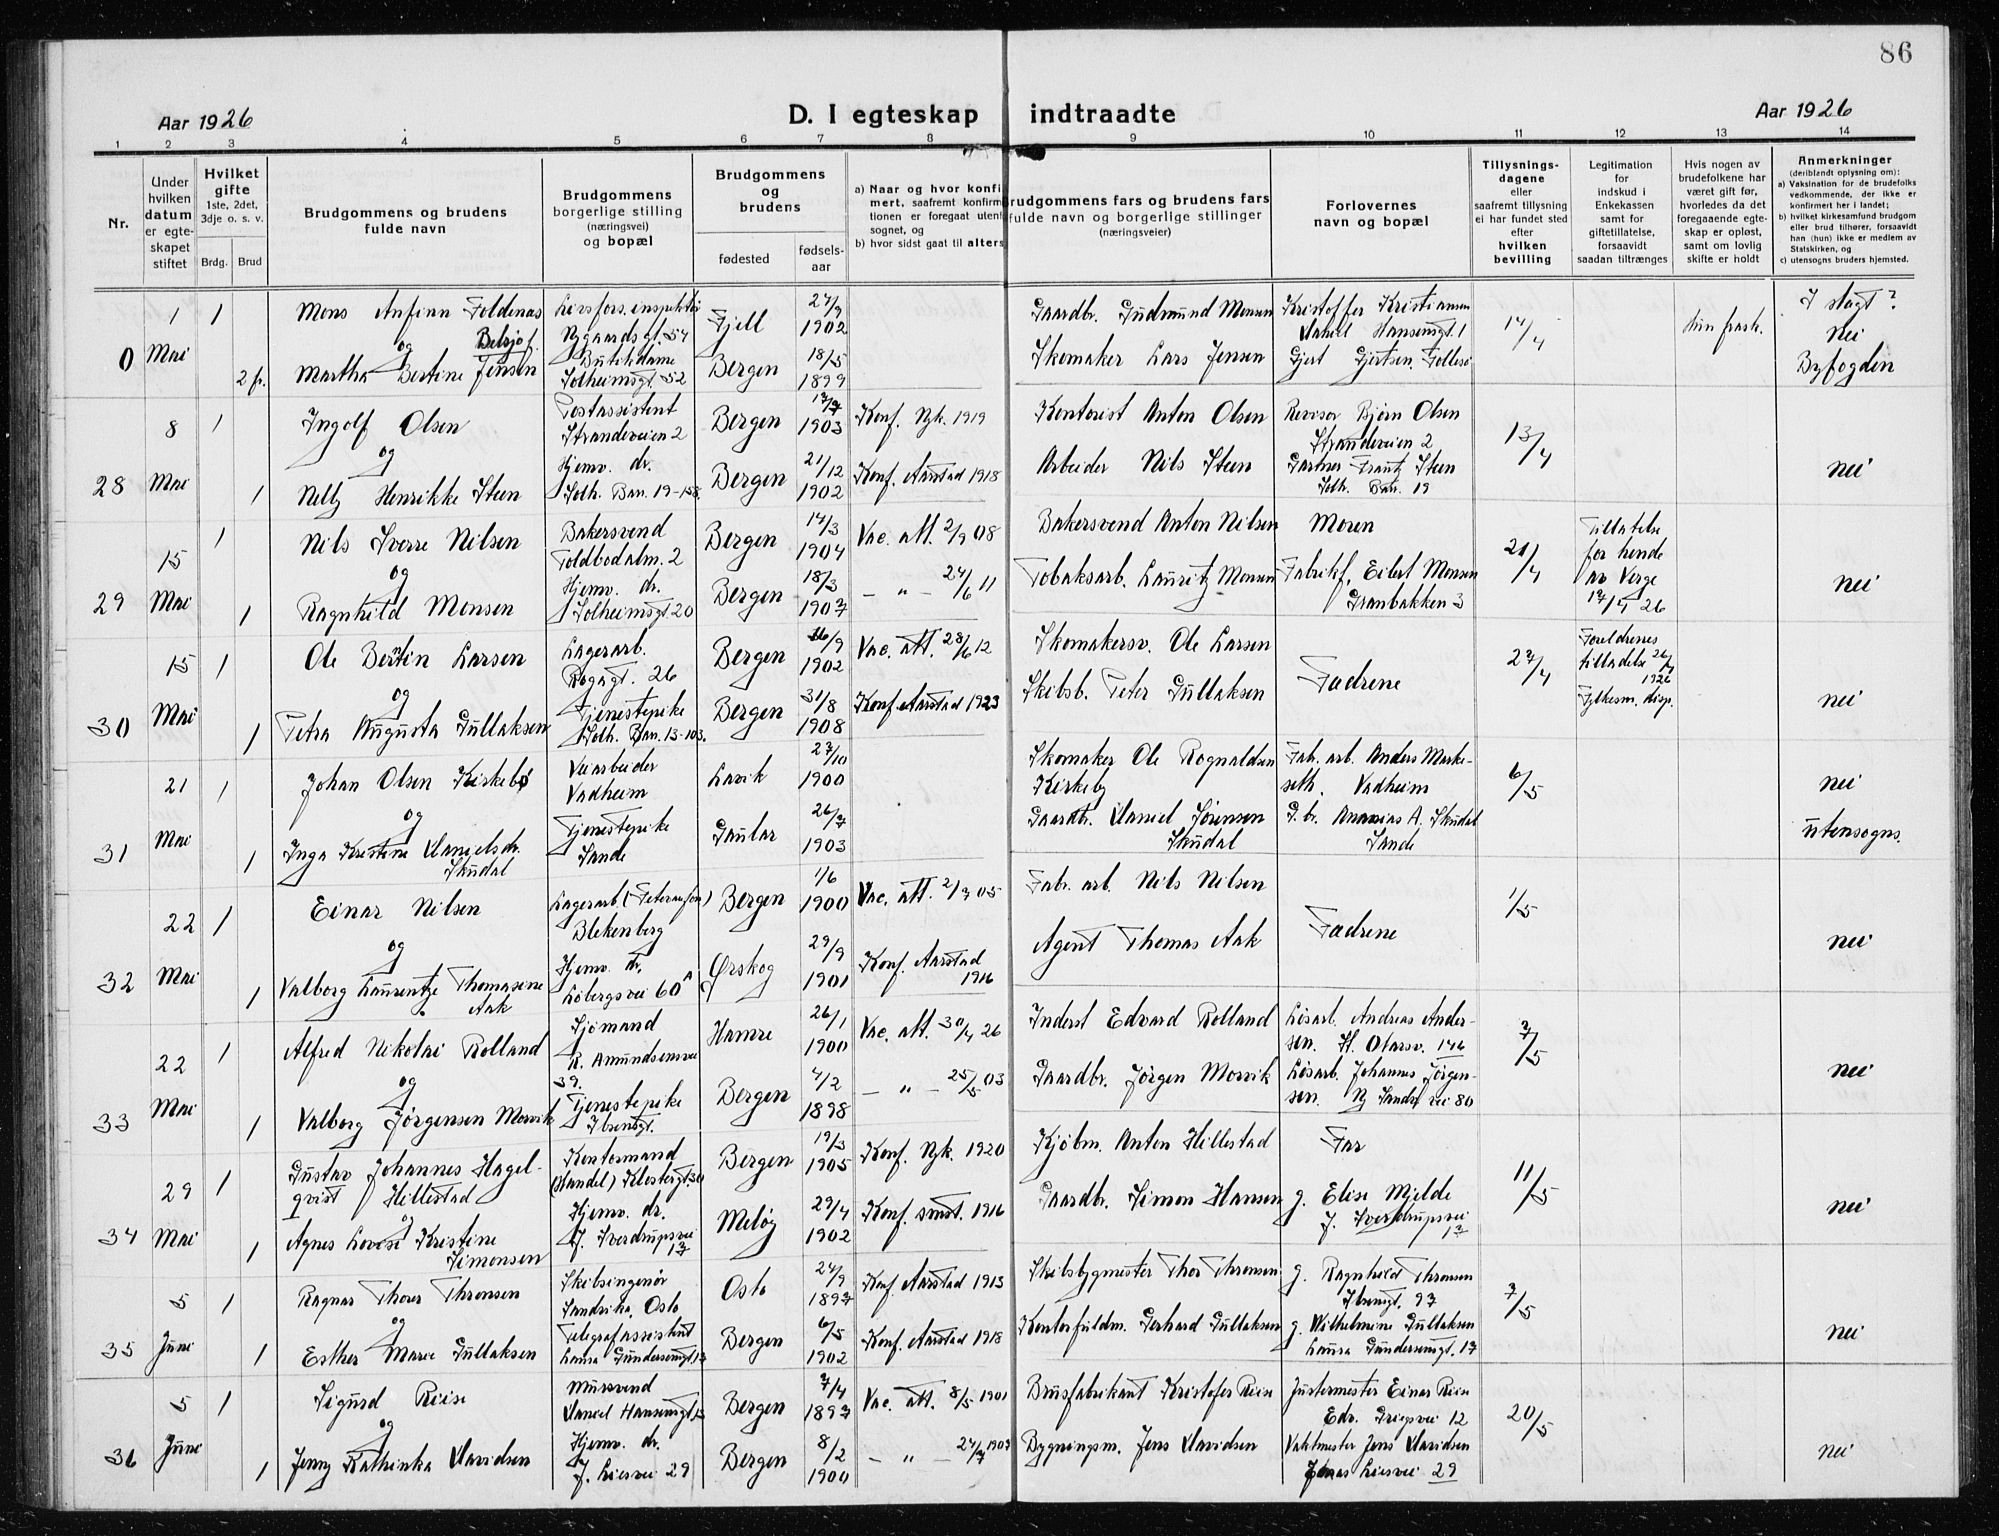 86
Aar 1926
D. I egteskap indtraadte
Aar 1926
1 2 3 4 5 6 7 8 9 10 11 12 13 14
Nr.
Under hvilken datum er egteskapet stiftet
Hvilket gifte
1ste, 2det, 3dje o. s. v.
Brdg. Brud
Brudgommens og brudens fulde navn
Brudgommens borgerlige stilling (næringsvei) og bopæl
Brudgommens og brudens
fødested
fødsels-aar
a) Naar og hvor konfirmert, saafremt konfirmationen er foregaat utenfor sognet, og
b) hvor sidst gaat til alters
Brudgommens fars og brudens fars fulde navn og borgerlige stillinger (næringsveier)
Forlovernes navn og bopæl
Tillysningsdagene eller saafremt tillysning ei har fundet sted efter hvilken bevilling
Legitimation for indskud i Enkekassen samt for giftetillatelse, forsaavidt saadan tiltrænges
Hvis nogen av brudefolkene har været gift før, hvorledes da det foregaaende egteskap er opløst, samt om lovlig skifte er holdt
Anmerkninger (deriblandt oplysning om):
a) Vaksination for de brudefolks vedkommende, der ikke er konfirmert her i landet;
b) hvilket kirkesamfund brudgom eller brud tilhører, forsaavidt han (hun) ikke er medlem av Statskirken, og
c) utensogns bruders hjemsted.
0
1 Mai
1
2 fr.
Mons Anfinn Foldenas
og
Martha Bertine Jensen
Livsfors.inspektør
Nygaardsgt. 54
Butikdame
Solheimsgt. 52
Fjell 27/9 1902
Bergen 18/5 1899
Gaardbr. Gudmund Monsen
Skomaker Lars Jensen
Kristoffer Kristiansen
Daniel Hansensgt. 1
Gjert Gjertsen, Follesø
14/4
Hun frask.
I slagt?
nei
Byfogden
28
8 Mai
1
1
Ingolf Olsen
og
Nelly Henrikke Steen
Postassistent
Strandeveien 2
Hjemv. dr.
Solh. Ban. 19-158
Bergen 1903
Bergen 21/12 1902
Konf. Nyk. 1919
Konf. Aarstad 1918
Kontorist Anton Olsen
Arbeider Nils Steen
Revisor Bjørn Olsen
Strandeveien 2
Gartner Frantz Steen
Solh. Ban. 19
13/4
nei
29
15 Mai
1
1
Nils Sverre Nilsen
og
Ragnhild Monsen
Bakersvend
Toldbodalm. 2
Hjemv. dr.
Solheimsgt. 20
Bergen 14/3 1904
Bergen 18/3 1907
Vac. att. 2/9 08
– " – 24/6 11
Bakersvend Anton Nilsen
Tobaksarb. Lauritz Monsen
Moren
Fabrikf. Eilert Monsen
Granbakken 3
21/4
Tillatelse
for hende
av Verge
17/4 26
nei
30
15 Mai
1
1
Ole Bertin Larsen
og
Petra Augusta Gullaksen
Lagerarb.
Rogagt. 26
Tjenestepike
Solh. Ban. 13-103.
Bergen 16/9 1902
Bergen 31/8 1908
Vac. att. 28/6 12
Konf. Aarstad 1923
Skomakersv. Ole Larsen
Skibsb. Peter Gullaksen
Fadrene
27/4
Foreldrenes
tilladelse 26/4
1926
Fylkesm. disp.
nei
31
21 Mai
1
1
Johan Olsen Kirkebø
og
Inga Kristine Danielsdr.
Skudal
Veiarbeider
Vadheim
Tjenestepike
Sande
Lavik 27/10 1900
Gaular 26/7 1903
Skomaker Ole Rognaldsen
Kirkeby
Gaardbr. Daniel Sørensen
Skudal
Fab. arb. Anders Marke-
seth. Vadheim
G. br. Ananias A. Skudal
Sande
6/5
nei
utensogns.
32
22 Mai
1
1
Einar Nilsen
og
Valborg Laurentze Thomasine
Aak
Lagerarb.
Blekenberg
Hjemv. dr.
Løbergsvei 60 A
Bergen 1/6 1900
Ørskog 29/9 1901
Vac. att. 2/9 05
Konf. Aarstad
1916
Fabr. arb. Nils Nilsen
Agent Thomas Aak
Fadrene
1/5
nei
33
22 Mai
1
1
Alfred Nikolai Rolland
og
Valborg Jørgensen Morvik
Sjømand
R. Amundsensvei
39.
Tjenestepike
Ibsensgt.
Hamre 26/1 1900
Bergen 4/2 1898
Vac. att. 30/4 26
– " – 25/5 03
Inderst Edvard Rolland
Gaardbr. Jørgen Morvik
Løsarb. Andreas Ander-
sen. H. Olarsv. 146
Løsarb. Johannes Jørgen-
sen. Ny Sandsvei 80
7/5
nei
34
29 Mai
1
1
Gustav Johannes Hagel-
qvist Hillestad
og
Agnes Lovise Kristine
Simonsen
Kontormand
(Handel) Klostergt. 30
Hjemv. dr.
J. Sverdrupsvei
17
Bergen 19/3 1905
Meløy 29/4 1902
Konf. Nyk. 1920
Konf. smst. 1916
Kjøbm. Anton Hillestad
Gaardbr. Simon Hansen
Far
g. Elise Mjelde
J. Sverdrupsvei
17
11/5
nei
35
5 Juni
1
1
Ragnar Thorer Thronsen
og
Esther Marie Gullaksen
Skibsingeniør
Sandvika, Oslo
Telegrafassistent
Laura Gundersensgt. 17
Oslo 24/9 1897
Bergen 6/5 1902
Konf. Aarstad 1913
Konf. Aarstad 1918
Skibsbygmester Thor Thronsen
Kontorfuldm. Gerhard Gullaksen
g. Ragnhild Thronsen
Ibsensgt. 97
g. Wilhelmine Gullaksen
Laura Gundersensgt. 17
7/5
nei
36
5 Juni
1
1
Sigurd Riise
og
Jenny Kathinka Davidsen
Mursvend
Daniel Hansensgt. 13
Hjemv. dr.
J. Liesvei 29
Bergen 7/4 1897
Bergen 8/2 1900
Vac. att. 8/5 1901
– " – 24/7 1903
Brusfabrikant Kristofer Riise
Bygningsm. Jens Davidsen
Justermester Einar Riise
Edv. Griegsvei 12
Vaktmester Jens Davidsen
Jonas Liesvei 29
20/5
nei